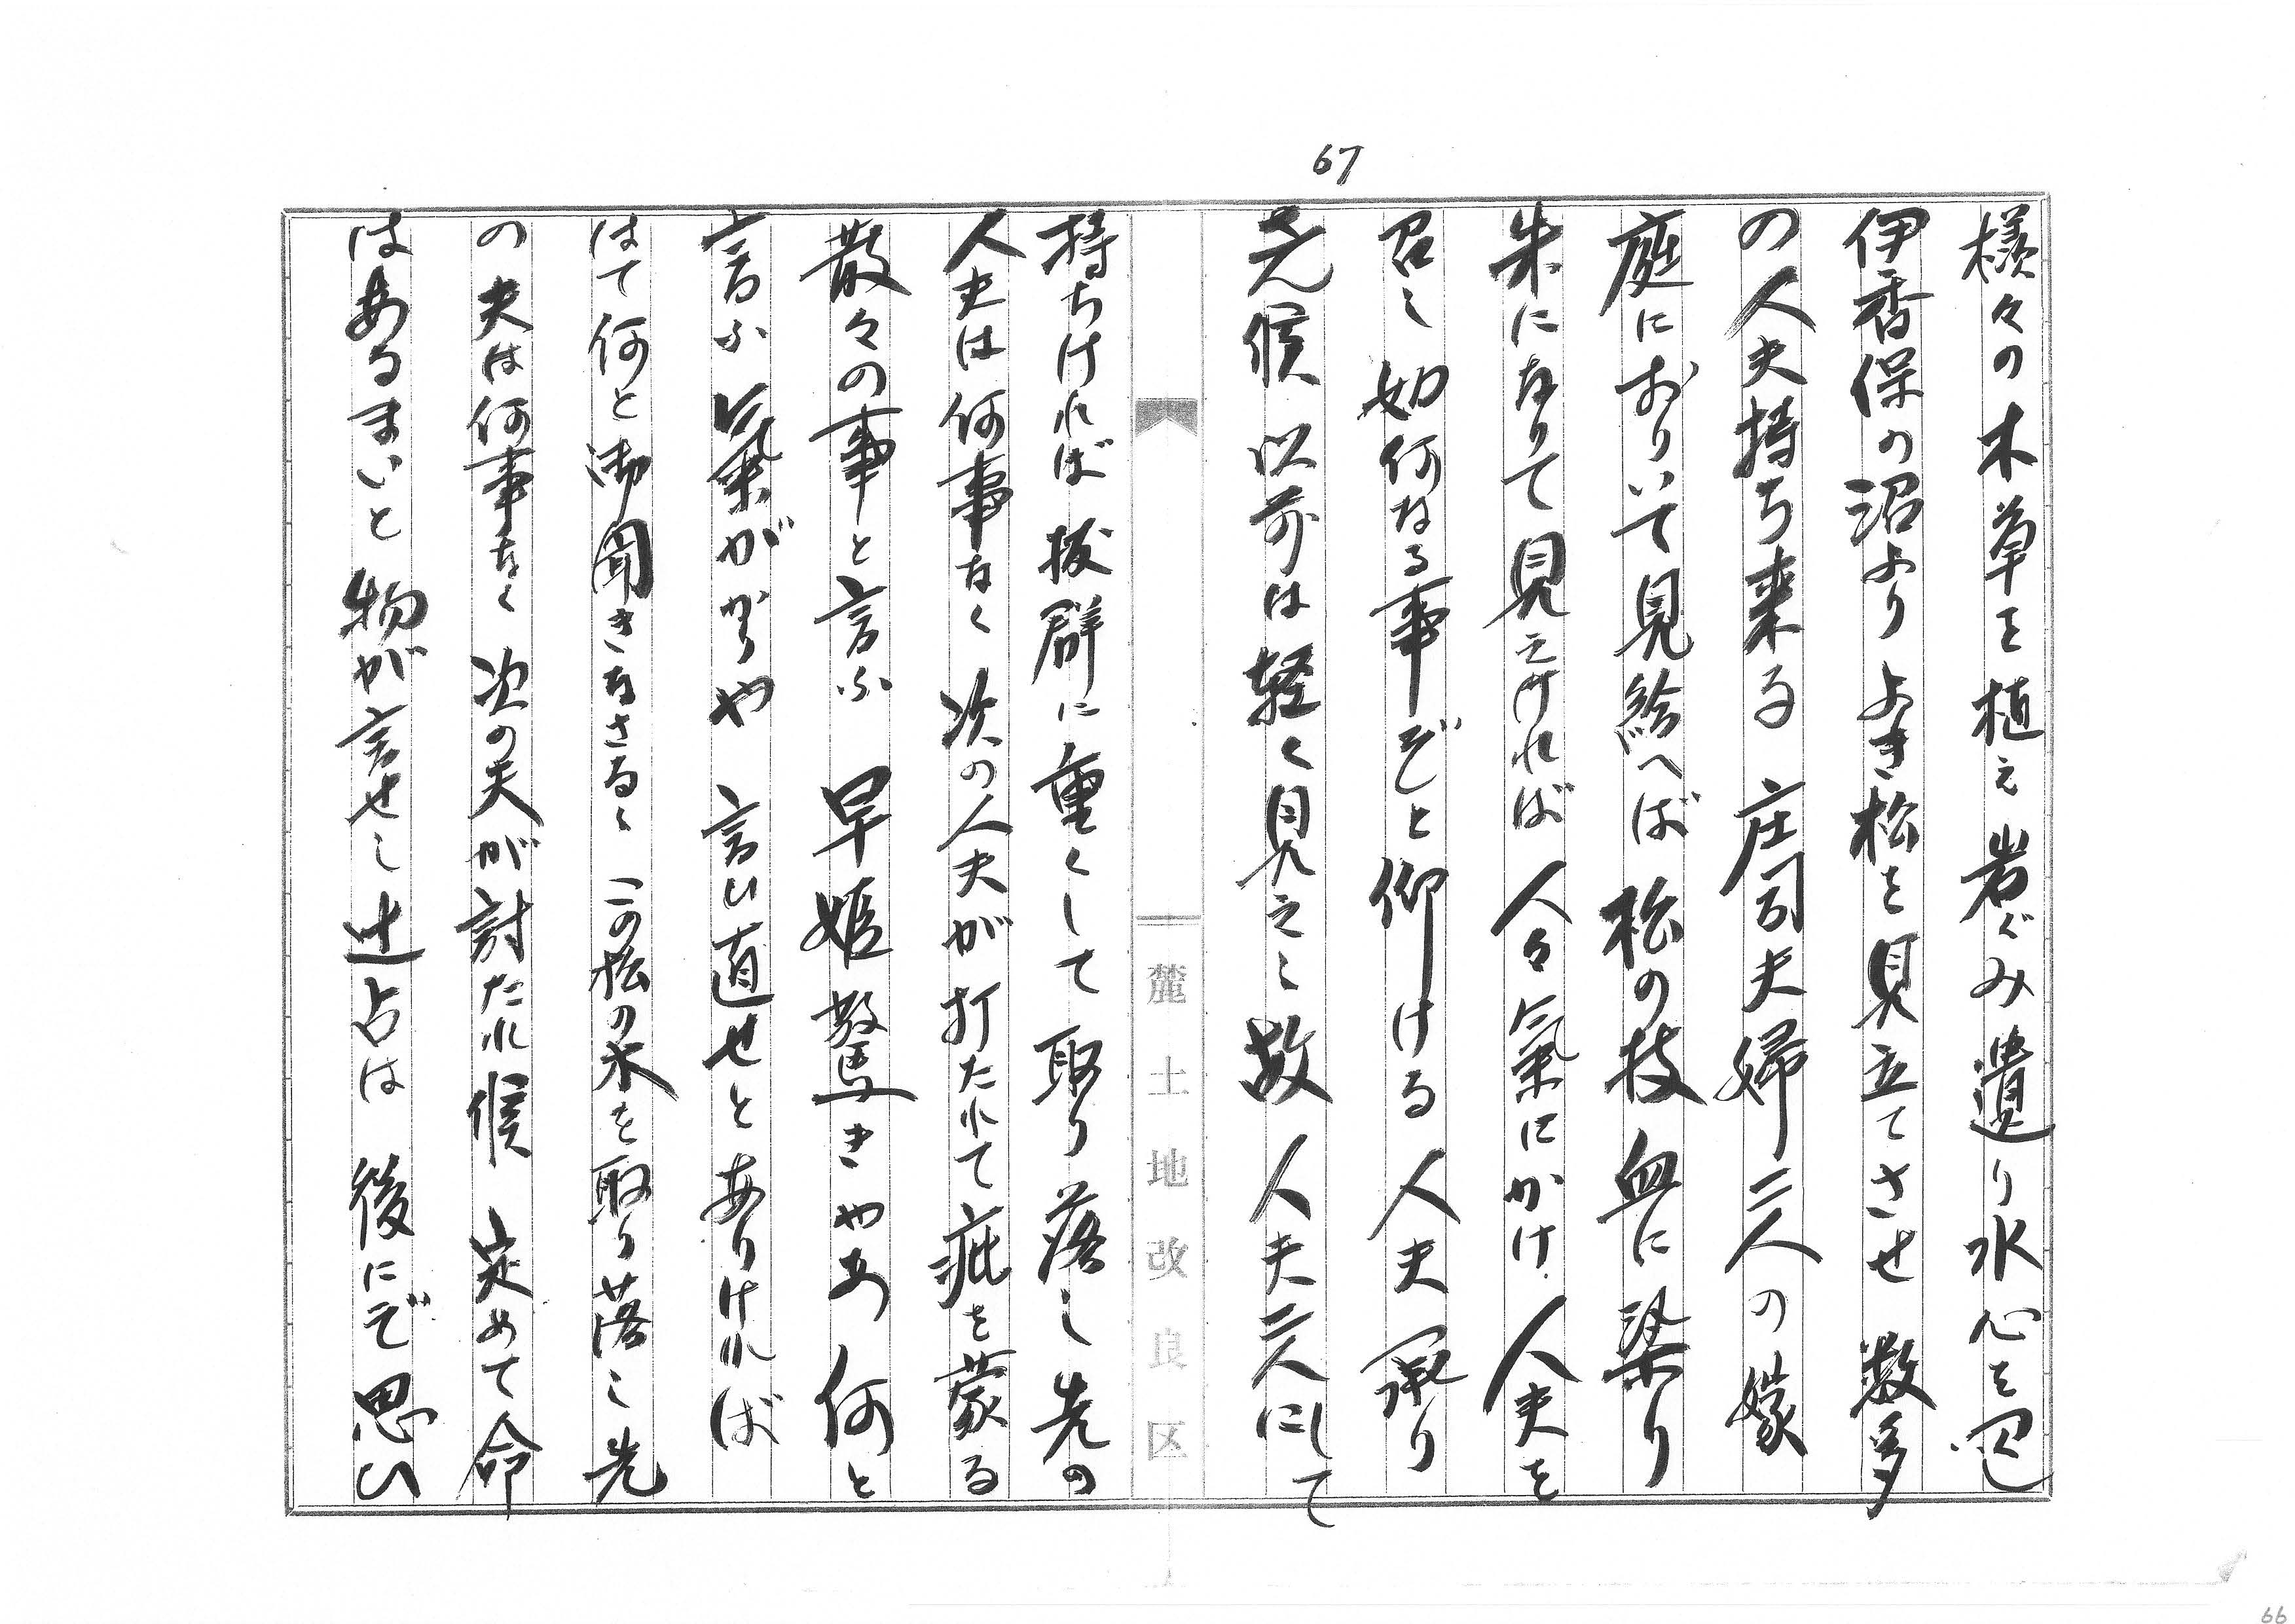 67
様々の木草を植え岩ぐみ遣り水心を辺
伊香保の沼よりよき松を見立てさせ 数多
の人夫持ち来る 庄司夫婦二人の嫁
庭におりいて見給へば 松の枝血に染り
朱になりて見えければ 人々氣にかけ 人夫を
召し 如何なる事ぞと仰ける 人夫承り
先候 以前は軽く見えし故 人夫二人にして
麓土地改良区
持ちければ 抜群に重くして 取り落し 先の
人夫は何事なく 次の人夫が打たれて 疵を蒙る
散々の事と言ふ 早姫驚きやあ 何と
言ふ 氣がかりや 言ひ直せとありければ
はて何と御聞きなさるゝ 二の松の木を取り落し 先
の夫は何事なく 次の夫が討たれ候 定めて命
はあるまいと 物が言せし 辻占は 後にぞ思ひ
66